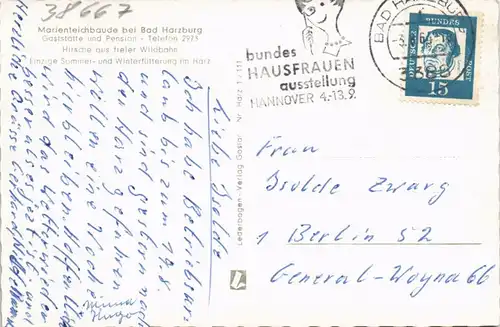 38667
Marienteichbaude bei Bad Harzburg
Gaststätte und Pension - Telefon 2975
Hirsche aus freier Wildbahn
Einzige Sommer- und Winterfütterung im Harz
Liebe Isolde
Ich habe Betriebsur
laub bis zum 19.8.
und sind gestern nach
dem Harz gefahren
wollen eine Woche
hierbleiben. Hoffentlich
wird das Wetter wieder
besser als es jetzt ist
Herzliche Grüße
Minna
Hugo
Lederbogen-Verlag Goslar Nr. Harz
bundes
HAUSFRAUEN
ausstellung
HANNOVER 4.-13.9.
BAD HARZBURG
DEUTSCHE BUNDESPOST
15
Frau
Isolde Zwarg
1 Berlin 52
General-Woyna 66